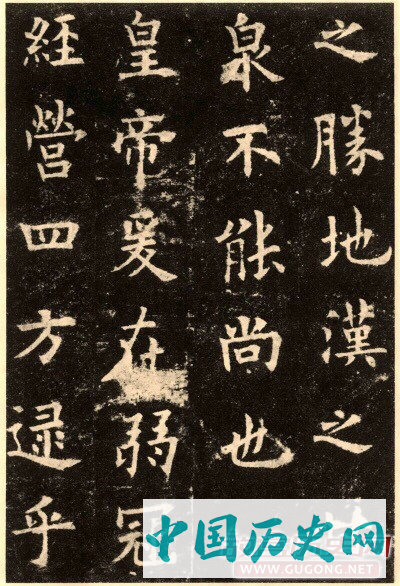 之勝地漢之
泉不能尚也
皇帝爰在弱冠
經營四方逮乎
中国历史网
WWW.GUGONG.NET